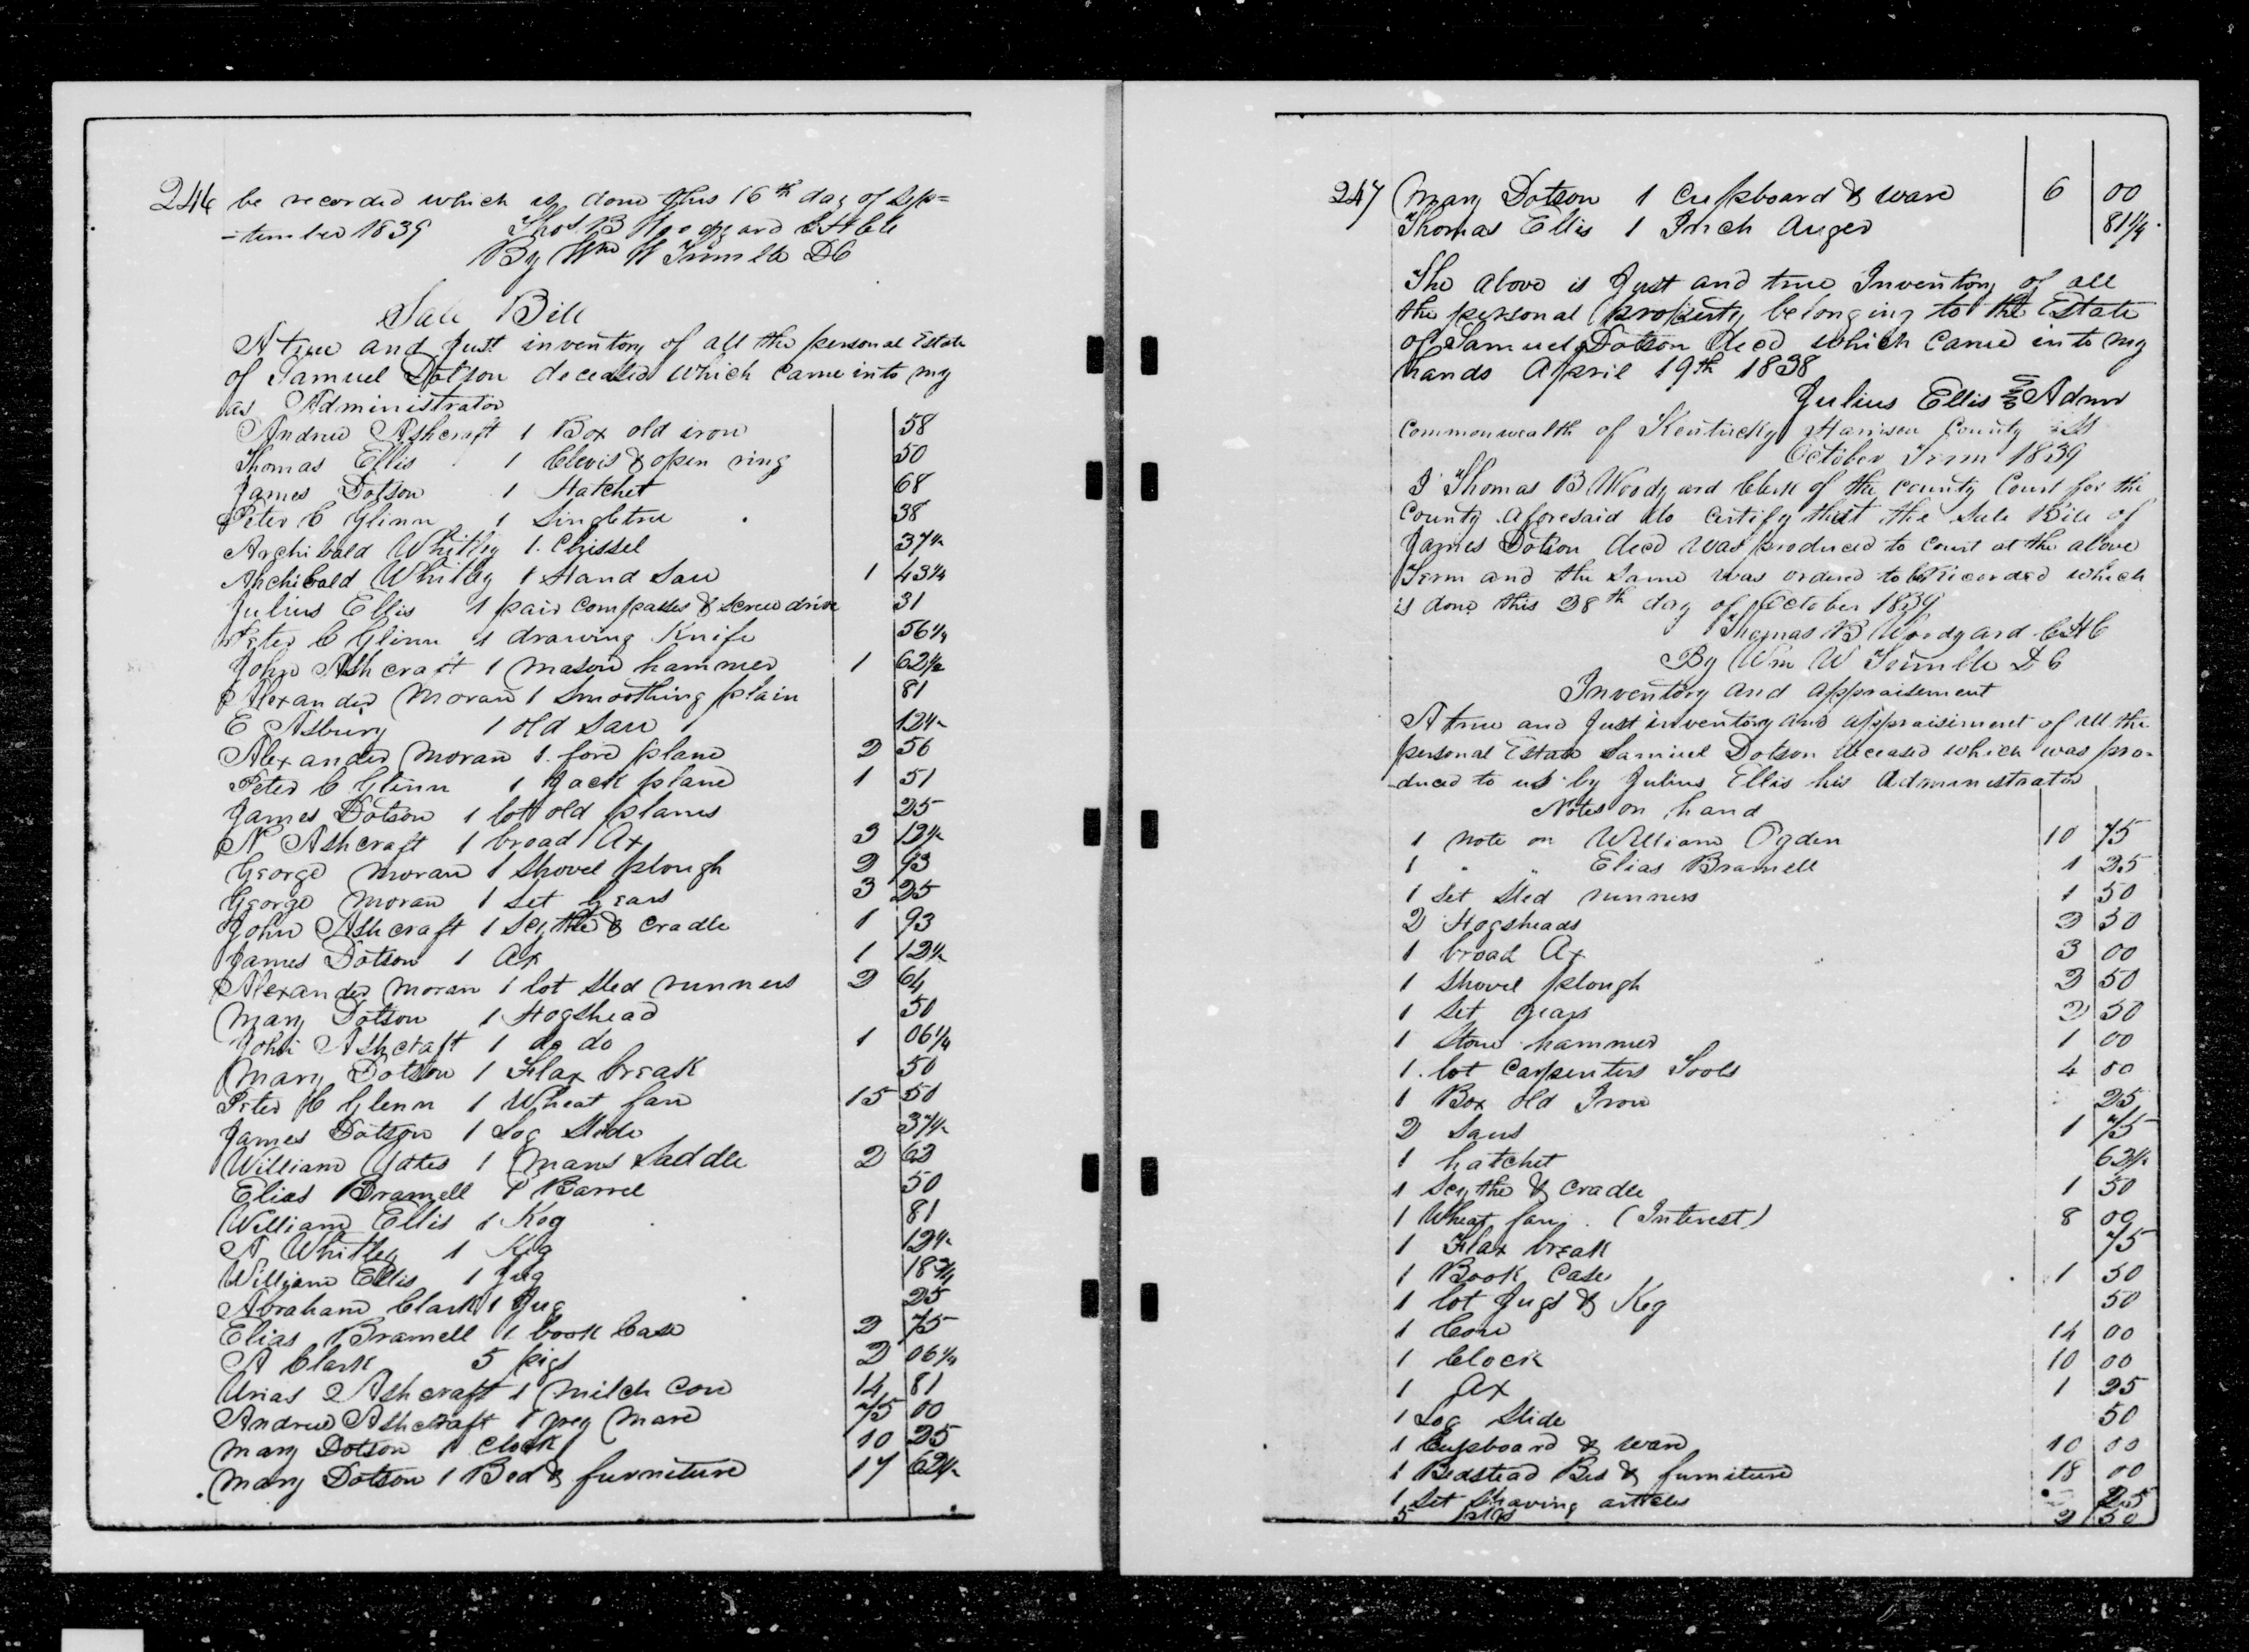 246 be recorded which is done this 16th day of Sep=
-tember 1839 Thos B Woodyard C H C C
By Wm W Trimble DC
Sale Bill
A true and Just inventory of all the personal Estate
of Samuel Dotson deceased which came into my
as Administrator
Andrew Ashcraft 1 Box old iron 58
Thomas Ellis 1 Clevis & open ring 50
James Dotson 1 Hatchet 68
Peter C Glinn 1 Singletree 38
Archibald Whitley 1 Chissel 37½
Archibald Whitley 1 Hand Saw 1 43¼
Julius Ellis 1 pair Compasses & Screw driver 31
Peter C Glinn 1 drawing Knife 56¼
John Ashcraft 1 Mason hammer 1 62½
Alexander Moran 1 Smoothing plain 81
E Asbury 1 old Saw 12½
Alexander Moran 1 fore plane 2 56
Peter C Glinn 1 Jack plane 1 51
James Dotson 1 lot old planes 25
N Ashcraft 1 broad Ax 3 12½
George Moran 1 Shovel plough 2 93
George Moran 1 Set Gears 3 25
John Ashcraft 1 Scythe & Cradle 1 93
James Dotson 1 Ax 1 12½
Alexander Moran 1 lot Sled runners 2 64
Mary Dotson 1 Hogshead 50
John Ashcraft 1 do do 1 06¼
Mary Dotson 1 Flax break 50
Peter C Glenn 1 Wheat fan 15 50
James Dotson 1 Log Slide 37½
William Yates 1 Mans Saddle 2 62
Elias Bramell 1 Barrel 50
William Ellis 1 Keg 81
A Whitley 1 Keg 12½
William Ellis 1 Jug 18¾
Abraham Clark 1 Jug 25
Elias Bramell 1 book Case 2 75
A Clark 5 pigs 2 06¼
Urias Ashcraft 1 Milch Cow 14 81
Andrew Ashcraft 1 grey Mare 75 00
Mary Dotson 1 Clock 10 25
Mary Dotson 1 Bed & furniture 17 62½
247 Mary Dotson 1 Cupboard & ware 6 00
Thomas Ellis 1 Inch Auger 81¼
The above is Just and true Inventory of all
the personal property belonging to the Estate
of Samuel Dotson decd which came into my
hands April 19th 1838
Julius Ellis Admr
Commonwealth of Kentucky Harrison County
October Term 1839
I Thomas B Woodyard Clerk of the County Court for the
County aforesaid do Certify that the Sale Bill of
James Dotson decd was produced to Court at the above
Term and the same was ordered to be recorded which
is done this 28th day of October 1839
Thomas B Woodyard C H C
By Wm W Trimble D C
Inventory and appraisement
A true and Just inventory and appraisiment of all the
personal Estate Samuel Dotson deceased which was pro-
-duced to us by Julius Ellis his Administrator
Notes on hand
1 note on William Ogden 10 75
1 " " Elias Bramell 1 25
1 Set Sled runners 1 50
2 Hogsheads 2 50
1 broad Ax 3 00
1 Shovel plough 2 50
1 Set gears 2 50
1 Stone hammer 1 00
1 lot Carpenters Tools 4 00
1 Box old Iron 25
2 Saws 1 75
1 hatchet 62½
1 Scythe & Cradle 1 50
1 Wheat fan . (Interest) 8 00
1 Flax break 75
1 Book Case 1 50
1 lot Jugs & Keg 50
1 Cow 14 00
1 Clock 10 00
1 Ax 1 25
1 Log Slide 50
1 Cupboard & ware 10 00
1 Bedstead Bed & furniture 18 00
1 Set Shaving articles 25
5 pigs 2 50